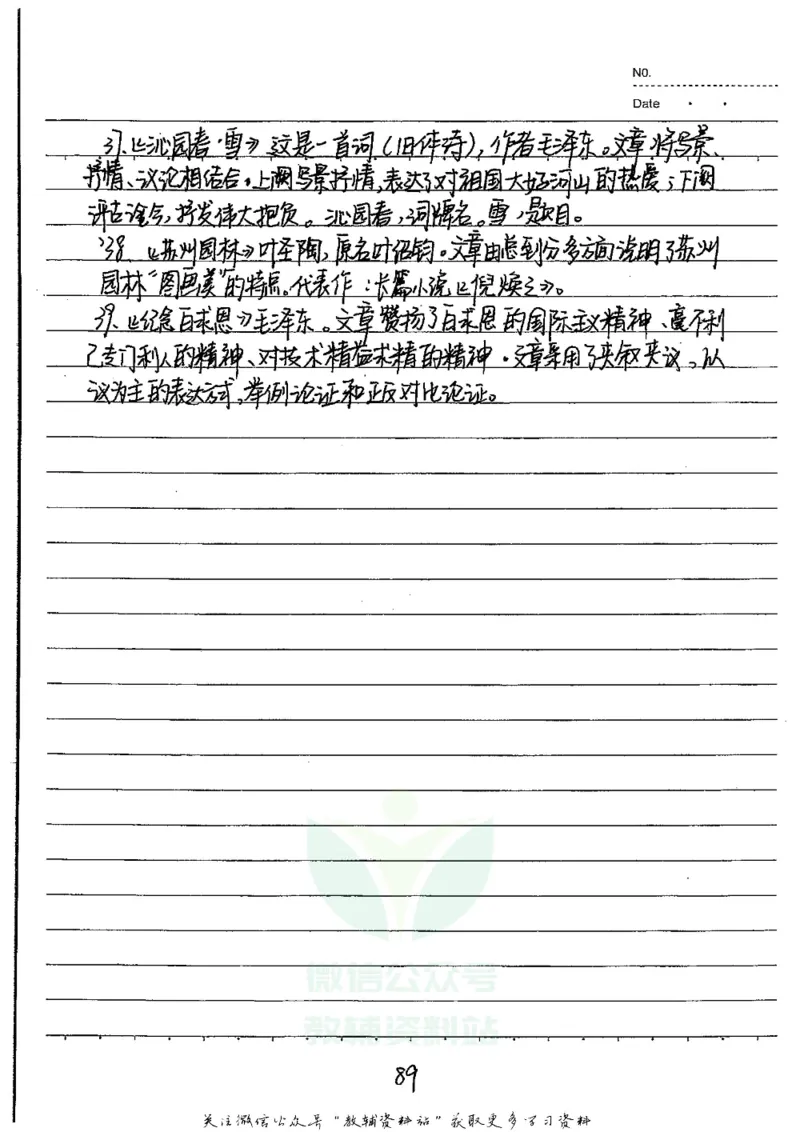 NO.
Date
37.《沁园春·雪》这是一首词(旧体诗),作者毛泽东。文章将写景、
抒情、议论相结合。上阕写景抒情,表达了对祖国大好河山的热爱;下阕
评古论今,抒发伟大抱负。沁园春,词牌名。雪,题目。
38.《苏州园林》叶圣陶,原名叶绍钧。文章由总到分多方面说明了苏州
园林“图画美”的特点。代表作:长篇小说《倪焕之》。
39.《纪念白求恩》毛泽东。文章赞扬了白求恩的国际主义精神、毫不利
己专门利人的精神、对技术精益求精的精神。文章采用了夹叙夹议,以
议为主的表达方式,举例论证和正反对比论证。
微信公众号
教辅资料站
89
关注微信公众号“教辅资料站”获取更多学习资料